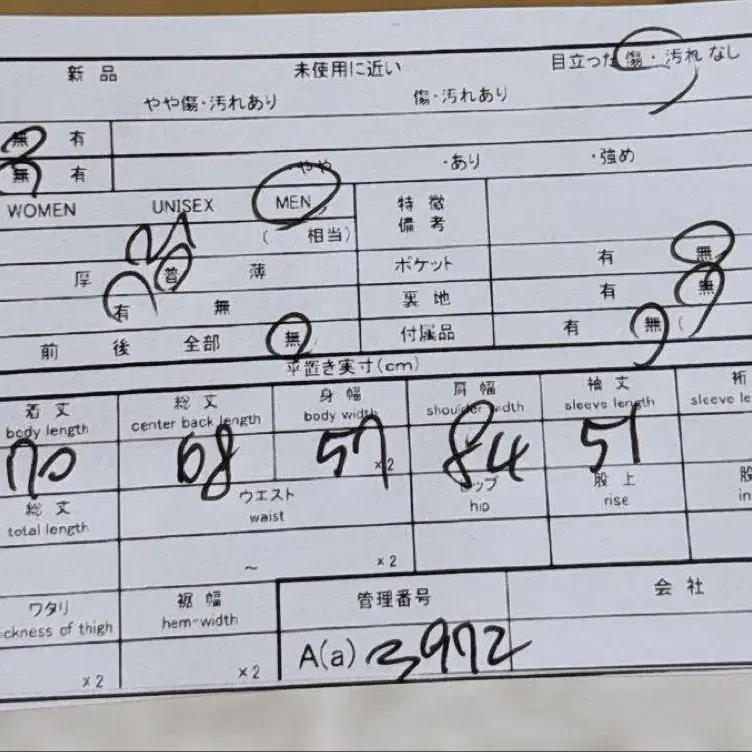 新品 未使用に近い 目立った傷・汚れなし
やや傷・汚れあり 傷・汚れあり
無 有
無 有 ・やや ・あり ・強め
WOMEN UNISEX MEN 特徴
備考
( 相当)
厚 普 薄 ポケット 有 無
有 無 裏地 有 無
前 後 全部 無 付属品 有 無 (
平置き実寸(cm)
着丈 総丈 身幅 肩幅 袖丈 裄
body length center back length body width shoulder width sleeve length sleeve le
70 68 57 ×2 51
総丈 ウエスト ップ 股上 股
total length waist hip rise in
~ ×2
ワタリ 裾幅 管理番号 会社
ckness of thigh hem-width
×2 ×2 A(a) 3972